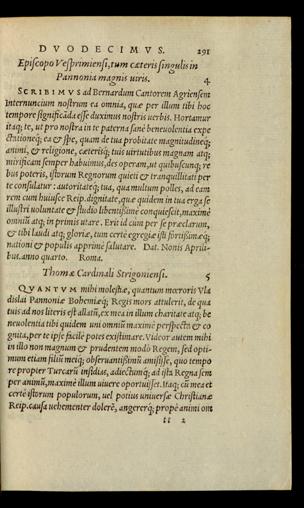 DVODECIMVS. 291
Episcopo Vesprimiensi, tum cæteris singulis in
Pannonia magnis uiris. 4
SCRIBIMVS ad Bernardum Cantorem Agriensem
Internuncium nostrum ea omnia, quæ per illum tibi hoc
tempore significāda esse duximus nostris uerbis. Hortamur
itaq; te, ut pro nostra in te paterna sanè beneuolentia expe
ctationeq; ea & spe, quam de tua probitate magnitudineq;
animi, & religione, cæterisq; tuis uirtutibus magnam atq;
mirificam semper habuimus, des operam, ut quibuscunq; re
bus poteris, istorum Regnorum quieti & tranquillitati per
te consulatur: autoritateq; tua, qua multum polles, ad eam
rem cum huiusce Reip. dignitate, quæ quidem in tua erga se
illustri uoluntate & studio libentissimè conquiescit, maximè
omniū atq; in primis utare. Erit id cum per se præclarum,
& tibi laudi atq; gloriæ, tum certè egregiæ isti fortissimæq;
nationi & populis apprimè salutare. Dat. Nonis Aprili-
bus. anno quarto. Roma.
Thomæ Cardinali Strigoniensi. 5
QVANTVM mihi molestiæ, quantum mœroris Vla
dislai Pannoniæ Bohemiæq; Regis mors attulerit, de qua
tuis ad nos literis est allatū, ex mea in illum charitate atq; be
neuolentia tibi quidem uni omniū maximè perspecta & co
gnita, per te ipse facile potes existimare. Videor autem mihi
in illo non magnum & prudentem modò Regem, sed opti-
mum etiam filiū meiq; obseruantissimū amisisse, quo tempo
re propter Turcarū insidias, adiectumq; ad ista Regna sem
per animū, maximè illum uiuere oportuisset. Itaq; cū mea et
certè istorum populorum, uel potius uniuersæ Christianæ
Reip. causa uehementer dolerē, angererq; propè animi om
II 2